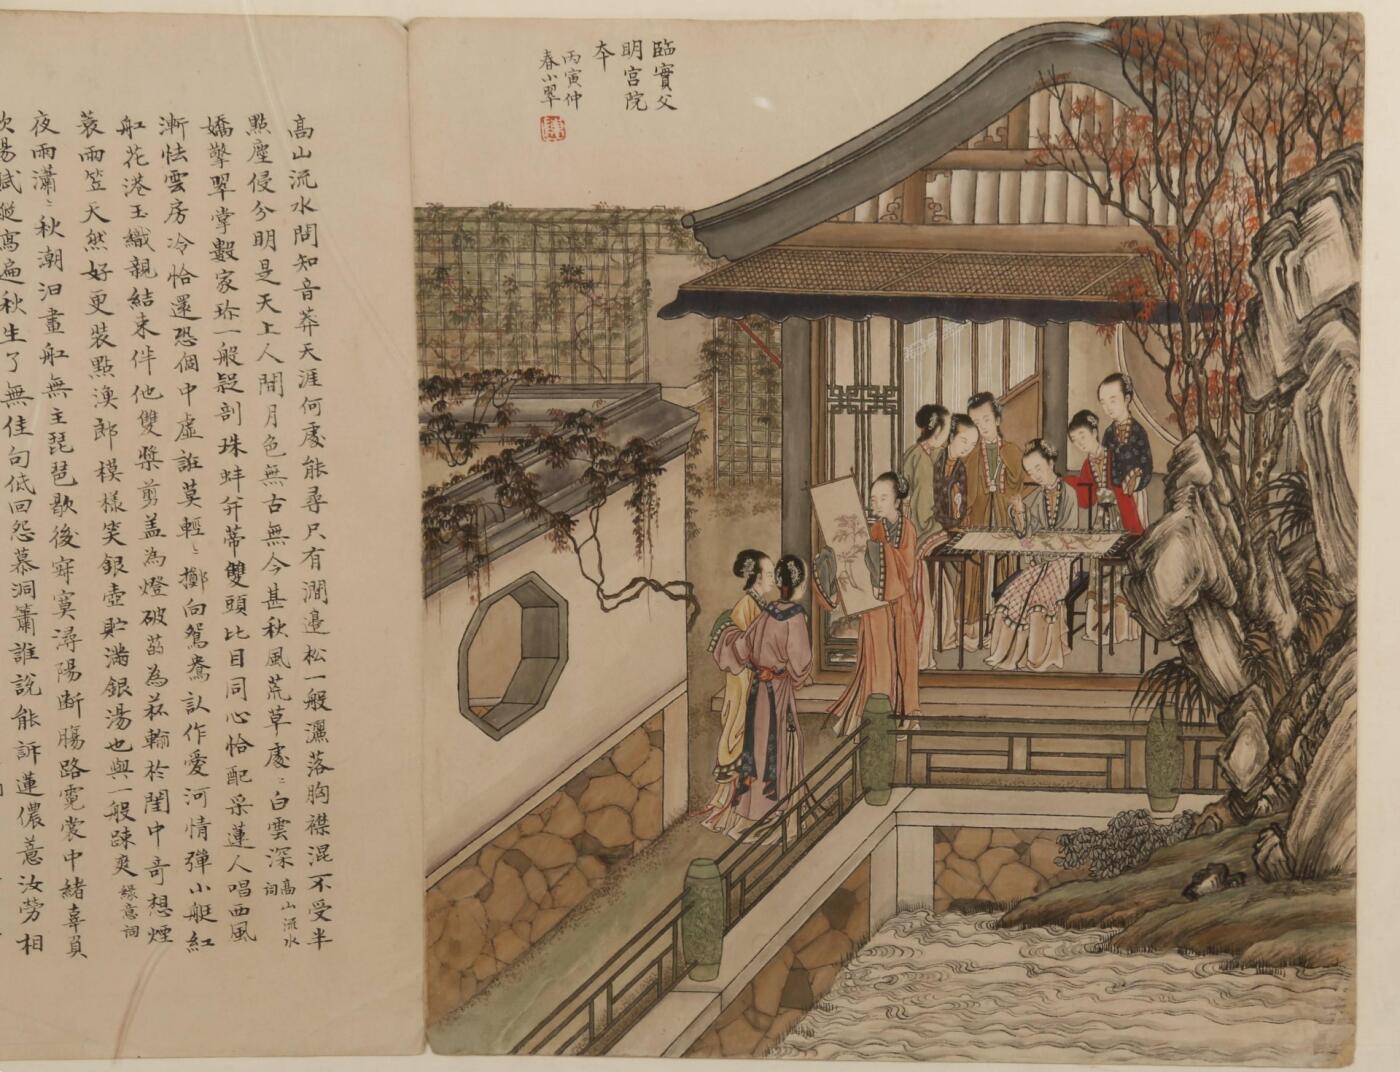 臨實父
明宮院
本
丙寅仲
春小翠
高山流水問知音莽天涯何處能尋尺有澗邉松一般灑落胸襟混不受半
點塵侵分明是天上人間月色無古無今甚秋風荒草處〻白雲深高山流水詞
嬌擎翠掌數家珍一般疑剖珠蚌并蒂雙頭比目同心恰配采蓮人唱西風
漸怯雲房冷恰還恐個中虛誑莫輕〻擲向鴛鴦認作愛河情彈小艇紅
舡花港玉纖親結束伴他雙槳剪盖為燈破菂為菰輸於閨中奇想煙
蓑雨笠天然好更裝點漁郎模樣笑銀壺貯滿銀湯也與一般踈爽緑意詞
夜雨瀟〻秋潮汩畫舡無主琵琶歇後寂寞潯陽斷腸路霓裳中緒辜負
賦 寫遍秋生了無佳句低回怨慕洞簫誰說能訴蓮儂薏汝勞相